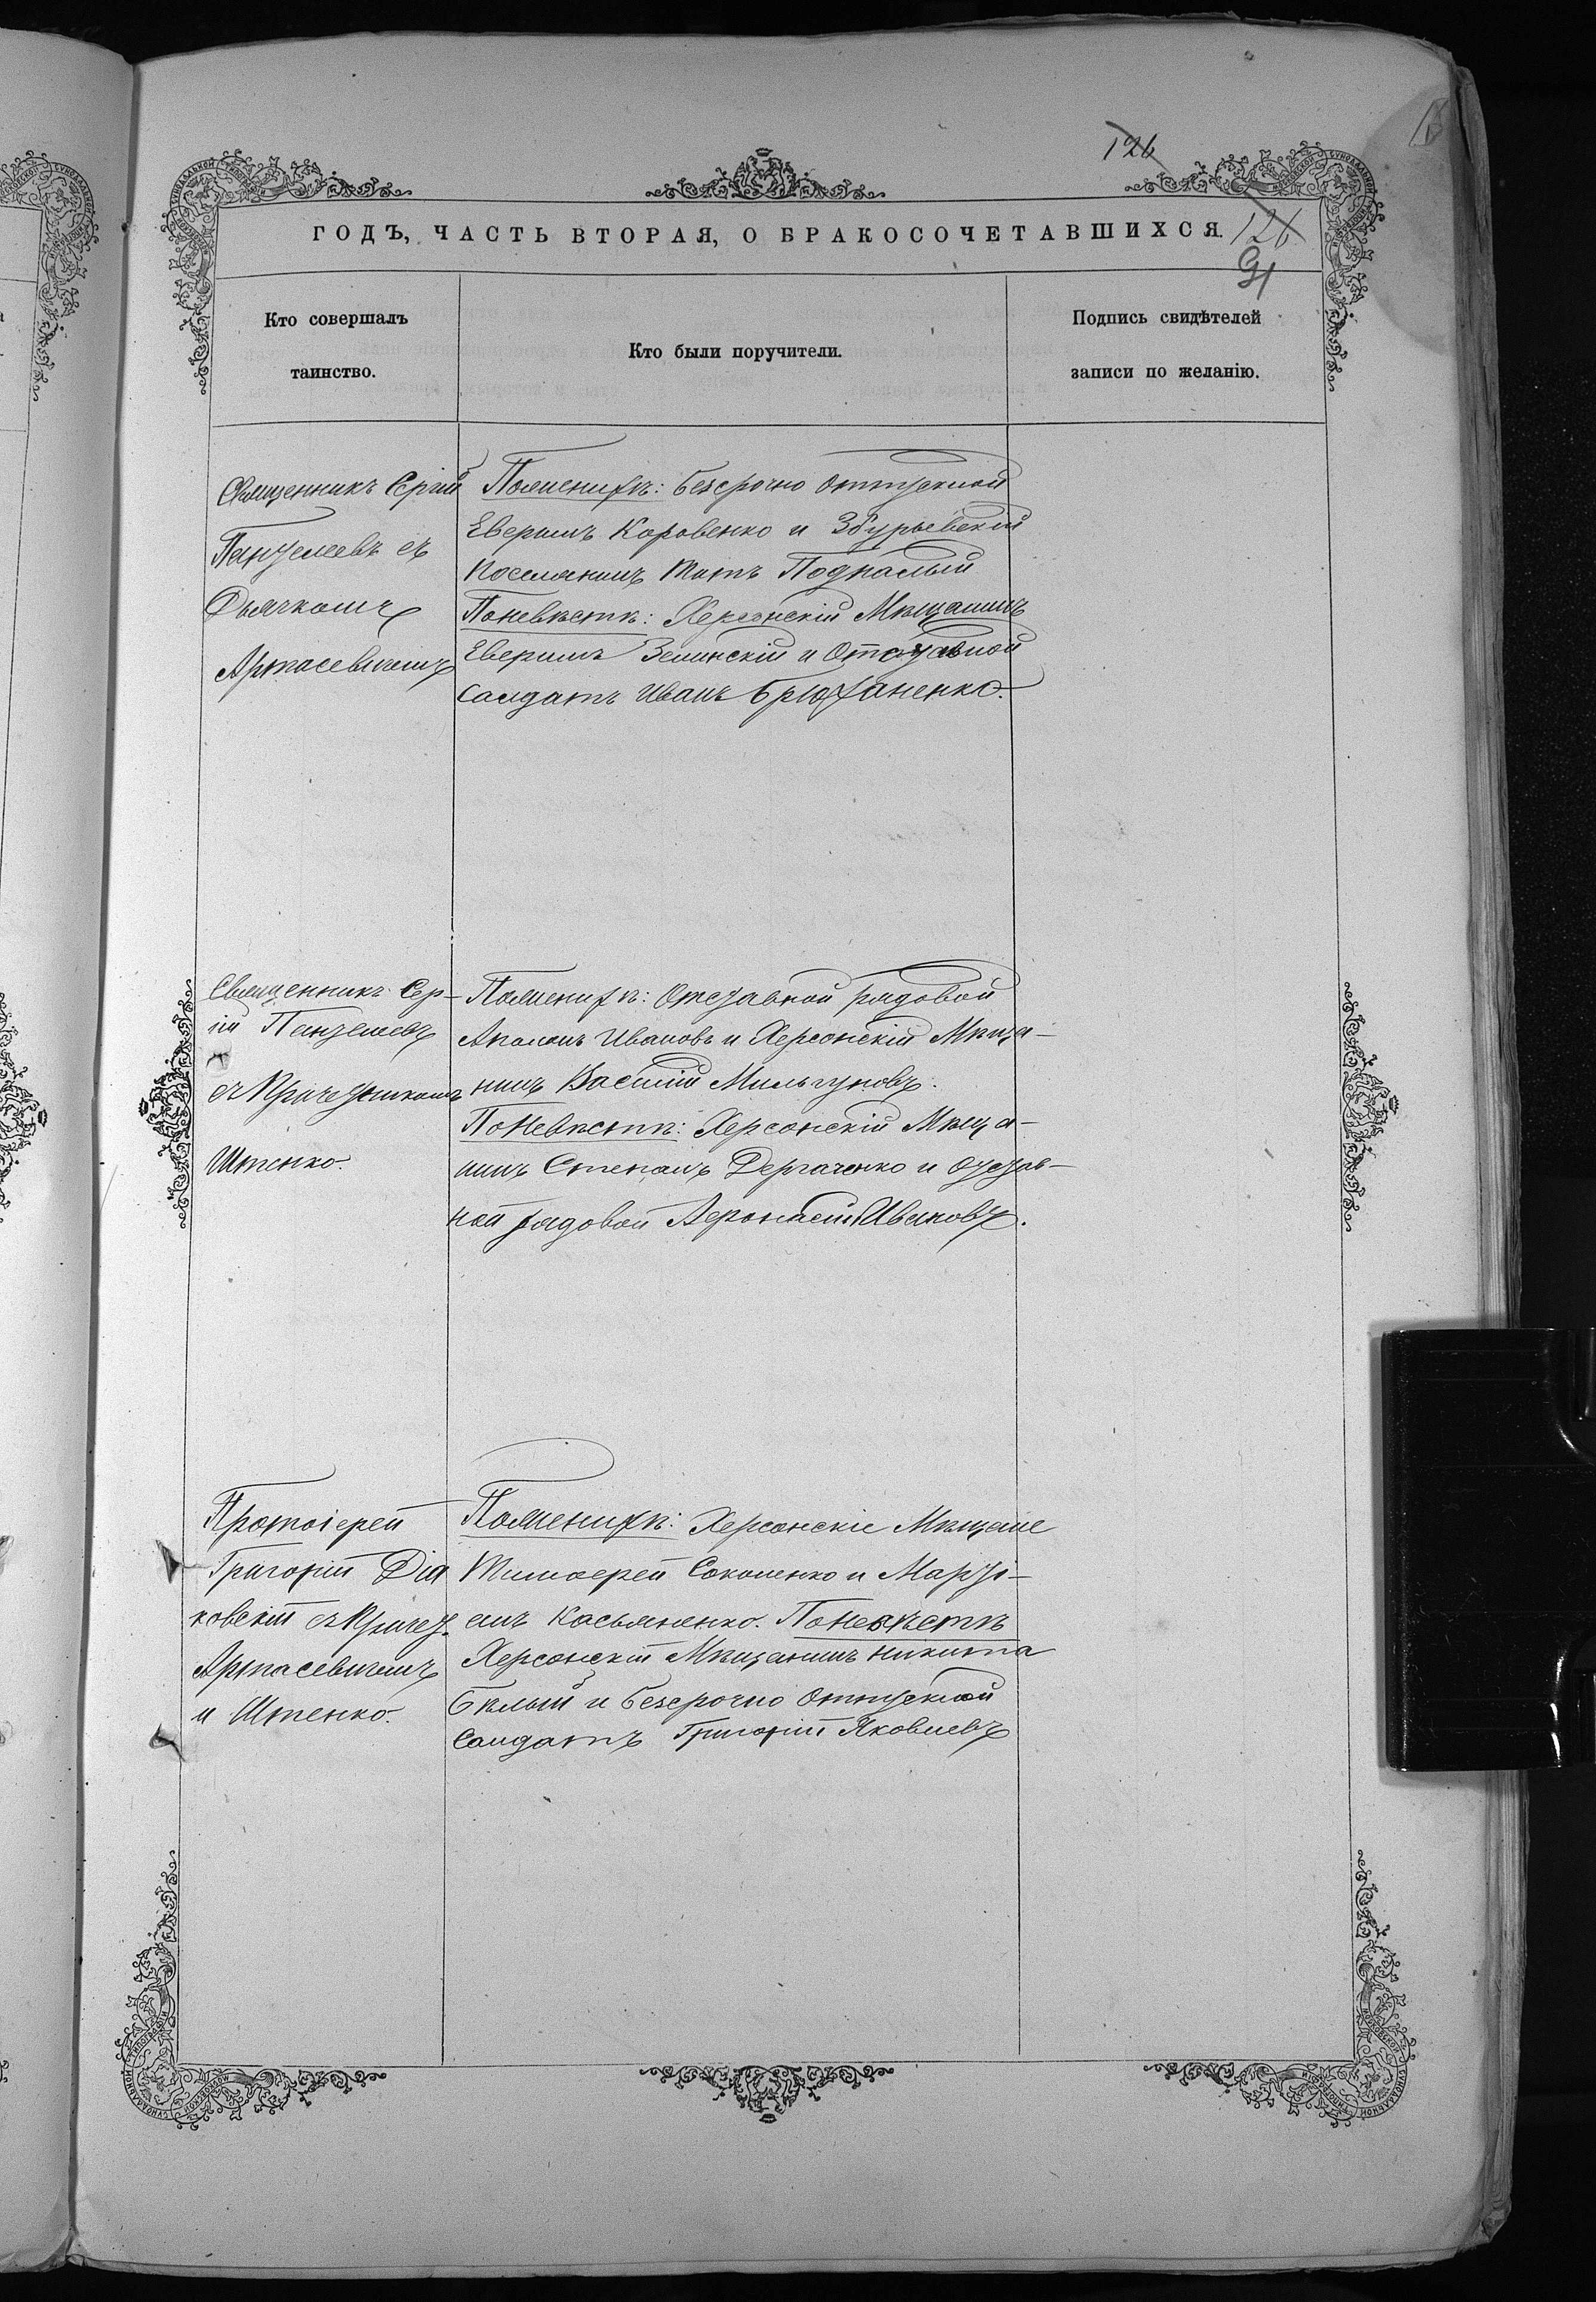 126
ГОДЪ, ЧАСТЬ ВТОРАЯ, О БРАКОСОЧЕТАВШИХСЯ.
126
91
Кто совершалъ
таинство.
Кто были поручители.
Подпись свидѣтелей
записи по желанію.
Священникъ Сергій
Пантелеевъ съ
Дьячкомъ
Артасевичемъ
Поженихѣ: безсрочно отпускной
Коровенко и Збурьевскій
поселянинъ Титъ Подпалый
Поневѣстѣ: Херсонскій Мѣщанинъ
Зелинскій и Отставной
Салдатъ Иванъ Брюханенко.
Священникъ Сер-
гій Пантелеевъ
съ Причетникомъ
Штенко.
Поженихѣ: Отставной рядовой
Ивановъ и Херсонскій Мѣща-
нинъ Василій Мильгуновъ.
Поневѣстѣ: Херсонскій Мѣща-
нинъ Степанъ Дергаченко и отстав-
ной рядовой Афонасій Ивановъ.
Протоіерей
Григорій Дія
ковскій съ Причет.
Артасевичемъ
и Штенко.
Поженихѣ: Херсонскіе Мѣщане
Тимофей Соколенко и Марті-
анъ Касьяненко. Поневѣстѣ
Херсонскій Мѣщанинъ Никита
Бѣлый и безсрочно Отпускной
Салдатъ Григорій Яковлевъ